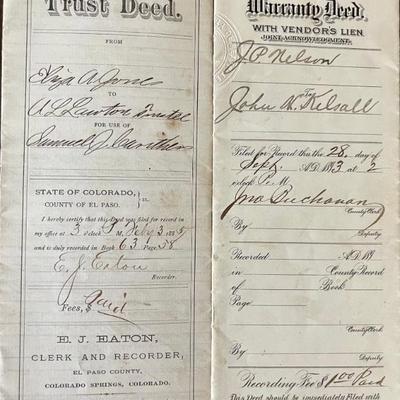 Trust Deed.
FROM
Eliza A. Jones
TO
A L Lawton Trustee
FOR USE OF
Samuel J.
STATE OF COLORADO, } ss.
COUNTY OF EL PASO.
I hereby certify that this Deed was filed for record in
my office at 3 o'clock P. M. Feby 3 188
and is duly recorded in Book 63 Page 58
E. J. Eaton
Recorder.
Fees, $ Paid
E. J. EATON,
CLERK AND RECORDER,
EL PASO COUNTY,
COLORADO SPRINGS, COLORADO.
Warranty Deed.
WITH VENDOR'S LIEN.
JOINT ACKNOWLEDGMENT.
J. P. Nelson
TO
John M. Kelsall
Filed for Record this the 28 day of
Sept. A.D. 1893 at 2
o'clock P. M.
Jno Buchanan
County Clerk
By
Deputy
Recorded A.D. 189
in County Record
of Book
Page
County Clerk
By
Deputy
Recording Fee $1.00 Paid
This Deed should be immediately Filed with